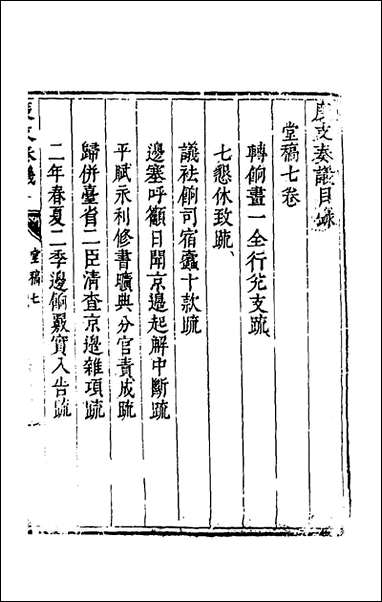 度支奏議目錄
堂稿七卷
轉餉畫一全行兊支疏
七懇休致疏
議祛餉司宿蠹十款疏
邊塞呼籲日聞京邊起解中斷疏
平賦永利修書曠典分官責成疏
歸併臺省二臣清查京邊雜項疏
二年春夏二季邊餉覈實入告疏
度支奏議
堂稿七